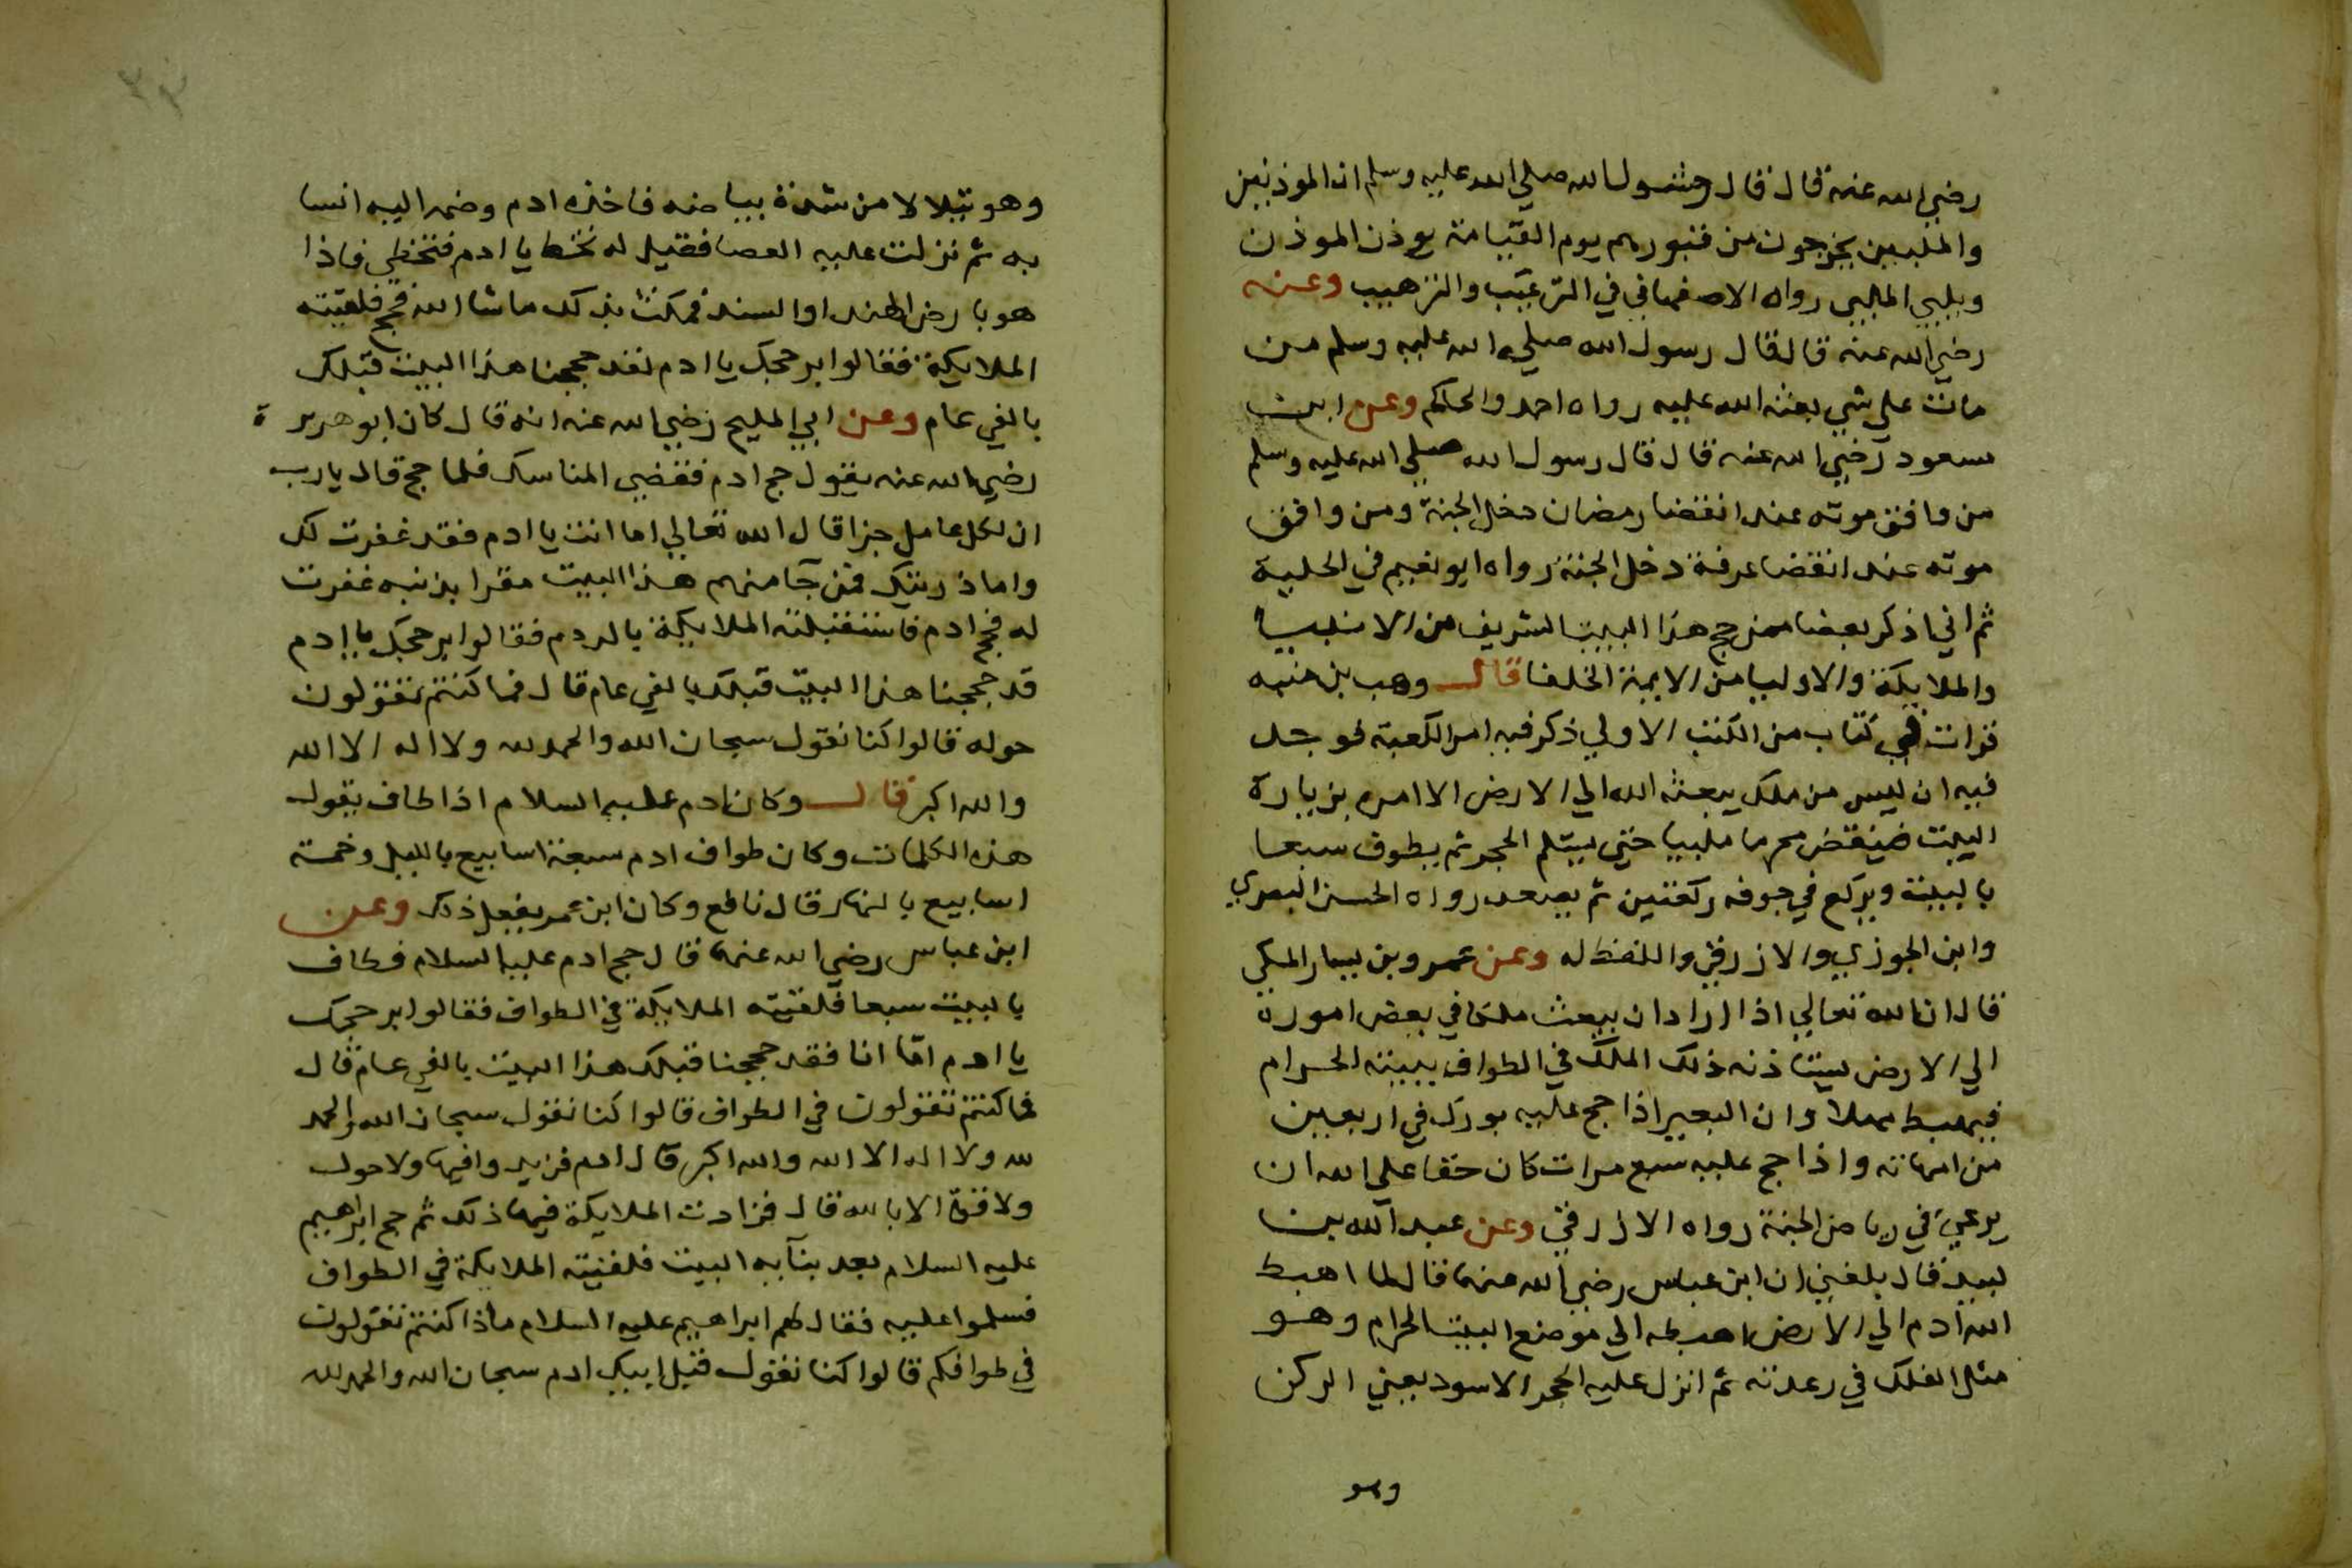 رضي الله عنه قال قال رسول الله صلي الله عليه وسلم ان الموذنين
والملبيين يخرجون من قبورهم يوم القيامة يوذن الموذن
ويلبي الملبي رواه الاصفهاني في الترغيب والترهيب وعنه
رضي الله عنه قال قال رسول الله صلي الله عليه وسلم من
مات علي شي بعثه الله عليه رواه احمد والحاكم وعن ابن
مسعود رضي الله عنه قال قال رسول الله صلي الله عليه وسلم
من وافق موته عند انقضا رمضان دخل الجنة ومن وافق
موته عند انقضا عرفة دخل الجنة رواه ابو نعيم في الحلية
ثم اني اذكر بعضا ممن حج هذا البيت الشريف من الانبيا
والملايكة والاوليا من الايمة الخلفا قال وهب بن منبه
قرات في كتاب من الكتب الاولي ذكر فيه امر الكعبة فوجد
فيه ان ليس من ملك يبعثه الله الي الارض الا امره بزيارة
البيت فينقض محرما ملبيا حتي يستلم الحجر ثم يطوف سبعا
بالبيت ويركع في جوفه ركعتين ثم يصعد رواه الحسن البصري
وابن الجوزي والازرقي واللفظ له وعن عمرو بن يسار المكي
قال ان الله تعالي اذا اراد ان يبعث ملكا في بعض اموره
الي الارض يستاذنه ذلك الملك في الطواف ببيته الحرام
فيهبط مهلا وان البعير اذا حج عليه بورك في اربعين
من امهاته واذا حج عليه سبع مرات كان حقا علي الله ان
يرعي في رياض الجنة رواه الازرقي وعن عبد الله بن
لبيد قال بلغني ان ابن عباس رضي الله عنهما قال لما اهبط
الله آدم الي الارض اهبطه الي موضع البيت الحرام وهو
مثل الفلك في رعدته ثم انزل عليه الحجر الاسود يعني الركن
وهو
وهو يتلالا من شدة بياضه فاخذه ادم وضمه اليه انسا
به ثم نزلت عليه العصا فقيل له تخط يا ادم فتخطي فاذا
هو بارض الهند او السند فمكث بذلك ماشا الله فحج فلقيته
الملايكة فقالوا بر حجك يا ادم لقد حججنا هذا البيت قبلك
بالفي عام وعن ابي المليح رضي الله عنه انه قال كان ابو هريرة
رضي الله عنه يقول حج ادم فقضي المناسك فلما حج قال يارب
ان لكل عامل جزا قال الله تعالي اما انت يا ادم فقد غفرت لك
واما ذريتك فمن جآ منهم هذا البيت مقرا بذنبه غفرت
له فحج ادم فاستقبلته الملايكة بالردم فقالوا بر حجك يا ادم
قد حججنا هذا البيت قبلك بالفي عام قال فما كنتم تقولون
حوله قالوا كنا نقول سبحان الله والحمد لله ولا اله الا الله
والله اكبر قال وكان ادم عليه السلام اذا طاف يقول
هذه الكلمات وكان طواف ادم سبعة اسابيع بالليل وخمسة
اسابيع بالنهار قال نافع وكان ابن عمر يفعل ذلك وعن
ابن عباس رضي الله عنهما قال حج ادم عليه السلام فطاف
بالبيت سبعا فلقيته الملايكة في الطواف فقالوا بر حجك
يا ادم امّا انا فقد حججنا قبلك هذا البيت بالفي عام قال
فما كنتم تقولون في الطواف قالوا كنا نقول سبحان الله والحمد
لله ولا اله الا الله والله اكبر قال ادم فزيدوا فيها ولا حول
ولا قوة الا بالله قال فزادت الملايكة فيها ذلك ثم حج ابراهيم
عليه السلام بعد بنآيه البيت فلقيته الملايكة في الطواف
فسلموا عليه فقال لهم ابراهيم عليه السلام ماذا كنتم تقولون
في طوافكم قالوا كنا نقول قبل ابيك ادم سبحان الله والحمد لله